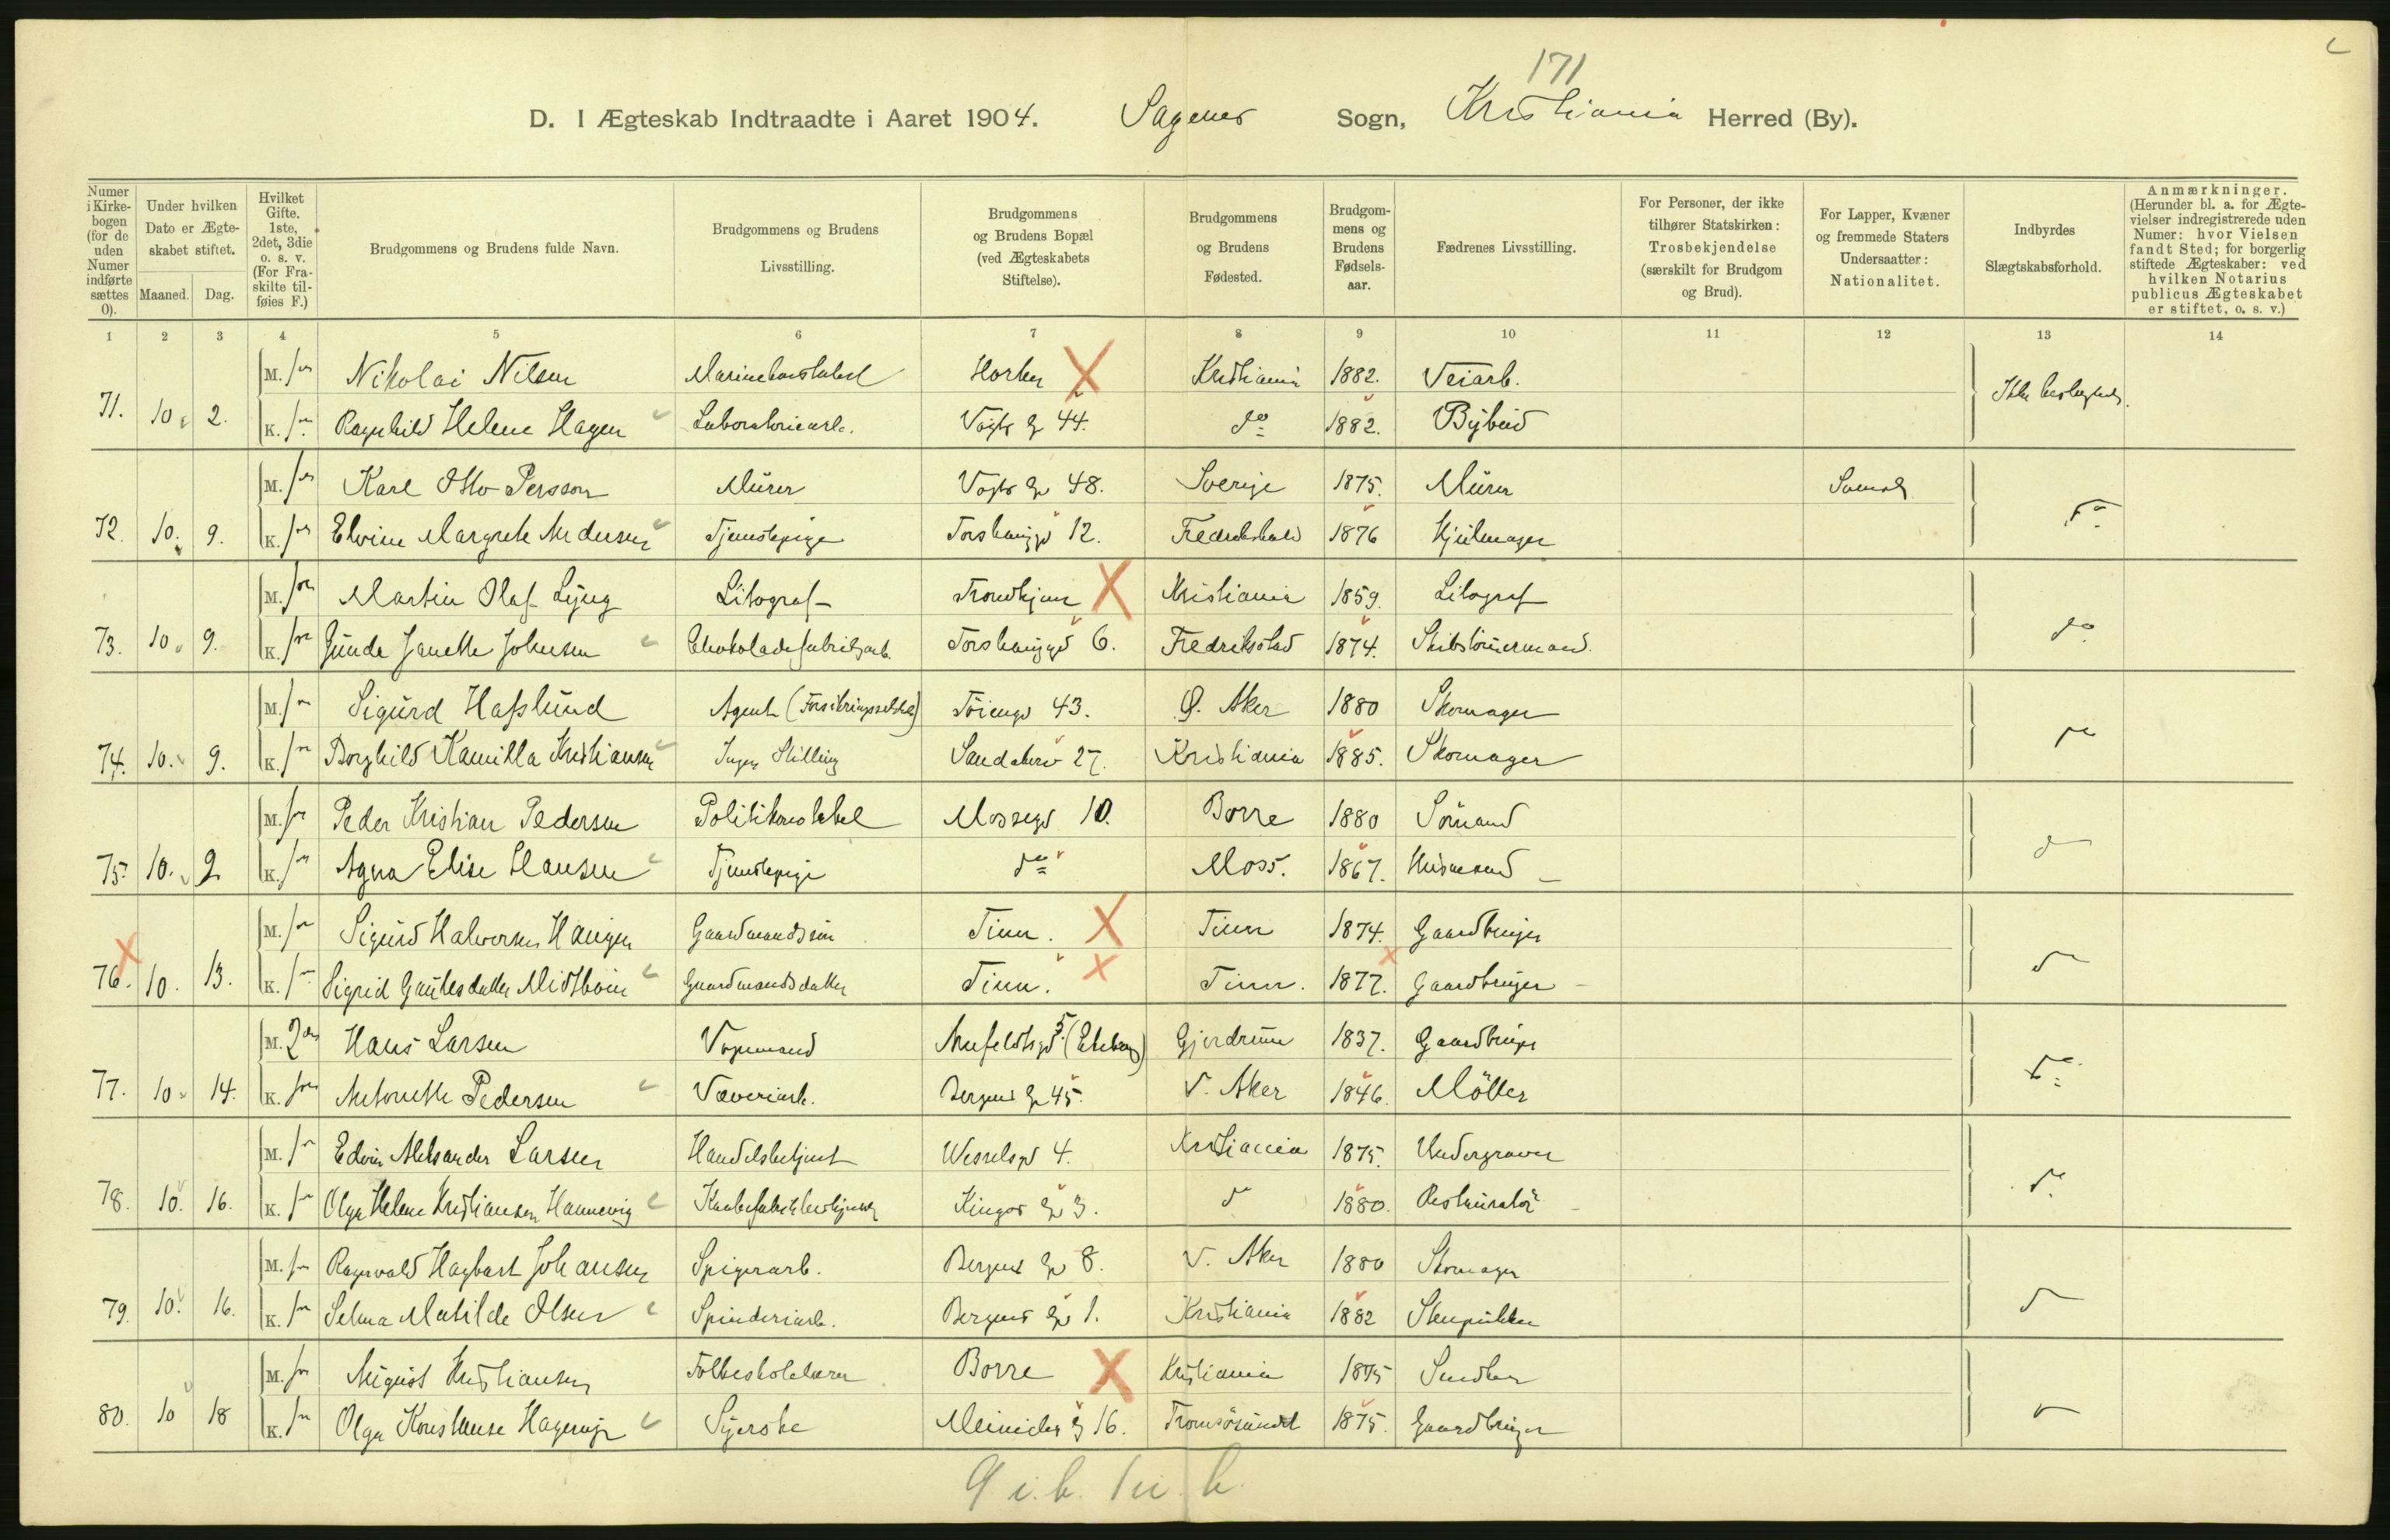 171
D. I Ægteskab Indtraadte i Aaret 1904. Sagenes Sogn, Kristiania Herred (By).
Numer i Kirkebogen (for de uden Numer indførte sættes 0). Under hvilken Dato er Ægteskabet stiftet. Maaned. Dag. Hvilket Gifte. 1ste, 2det, 3die o. s. v. (For Fraskilte tilføies F.) Brudgommens og Brudens fulde Navn. Brudgommens og Brudens Livsstilling. Brudgommens og Brudens Bopæl (ved Ægteskabets Stiftelse). Brudgommens og Brudens Fødested. Brudgommens og Brudens Fødselsaar. Fædrenes Livsstilling. For Personer, der ikke tilhører Statskirken: Trosbekjendelse (særskilt for Brudgom og Brud). For Lapper, Kvæner og fremmede Staters Undersaatter: Nationalitet. Indbyrdes Slægtskabsforhold. Anmærkninger. (Herunder bl. a. for Ægtevielser indregistrerede uden Numer: hvor Vielsen fandt Sted; for borgerlig stiftede Ægteskaber: ved hvilken Notarius publicus Ægteskabet er stiftet, o. s. v.)
1 2 3 4 5 6 7 8 9 10 11 12 13 14
M. 1ste Nikolai Nilsen Marinekonstabel Horten Kristiania 1882. Veiarb.
71. 10. 2. K. 1ste Ragnhild Helene Hagen Laboratoriearb. Vogts g 44. do 1882. Bybud Ikke beslægtede.
M. 1ste Karl Otto Persson Murer Vogts g 48. Sverige 1875. Murer Svensk
72. 10. 9. K. 1ste Elvine Margrete Andersen Tjenestepige Torshauggd 12. Fredrikshald 1876 Hjulmager do
M. 1ste Martin Olaf Ljung Litograf Trondhjem Kristiania 1859. Litograf
73. 10. 9. K. 1ste Gunda Janette Johnsen Chokoladefabrikarb. Torshauggd 6. Fredrikstad 1874. Skibstømermand. do
M. 1ste Sigurd Hafslund Agent Tøiengd 43. Ø. Aker 1880 Skomager
74. 10. 9. K. 1ste Borghild Kamilla Kristiansen Ingen Stilling Sandakerv 27. Kristiania 1885. Skomager do
M. 1ste Peder Kristian Pedersen Politikonstabel Mossegd 10. Borre 1880 Sømand
75. 10. 9. K. 1ste Agna Elise Hansen Tjenestepige do Moss. 1867. Husmand do
M. 1ste Sigurd Halvorsen Haugen Gaardmandssøn Tinn. Tinn 1874. Gaardbruger
76. 10. 13. K. 1ste Sigrid Gautesdatter Midtbøen Gaardmandsdatter Tinn. Tinn. 1877. Gaardbruger do
M. 2den Hans Larsen Vognmand Armfeldtsgd 5 (Ekeberg) Gjerdrum 1837. Gaardbruger
77. 10. 14. K. 1ste Antonette Pedersen Væveriarb. Bergens g 45. V. Aker 1846. Møller do
M. 1ste Edvin Aleksander Larsen Handelsbetjent Wesselsgd 4. Kristiania 1875. Undergraver
78. 10. 16. K. 1ste Olga Helene Kristiansen Hannevig Kingos g 3. do 1880. Restauratør do
M. 1ste Ragnvald Hagbart Johansen Spigerarb. Bergens g 8. V. Aker 1880 Skomager
79. 10. 16. K. 1ste Selma Matilde Olsen Spinderiarb. Bergens g 1. Kristiania 1882 Stenpukker do
M. 1ste August Kristiansen Folkeskolelærer Borre Kristiania 1875 Snedker
80. 10 18 K. 1ste Olga Konstanse Hagerup Syerske g 16. Tromsøsundet 1875. Gaardbruger do
9 i. b. 1 u. b.